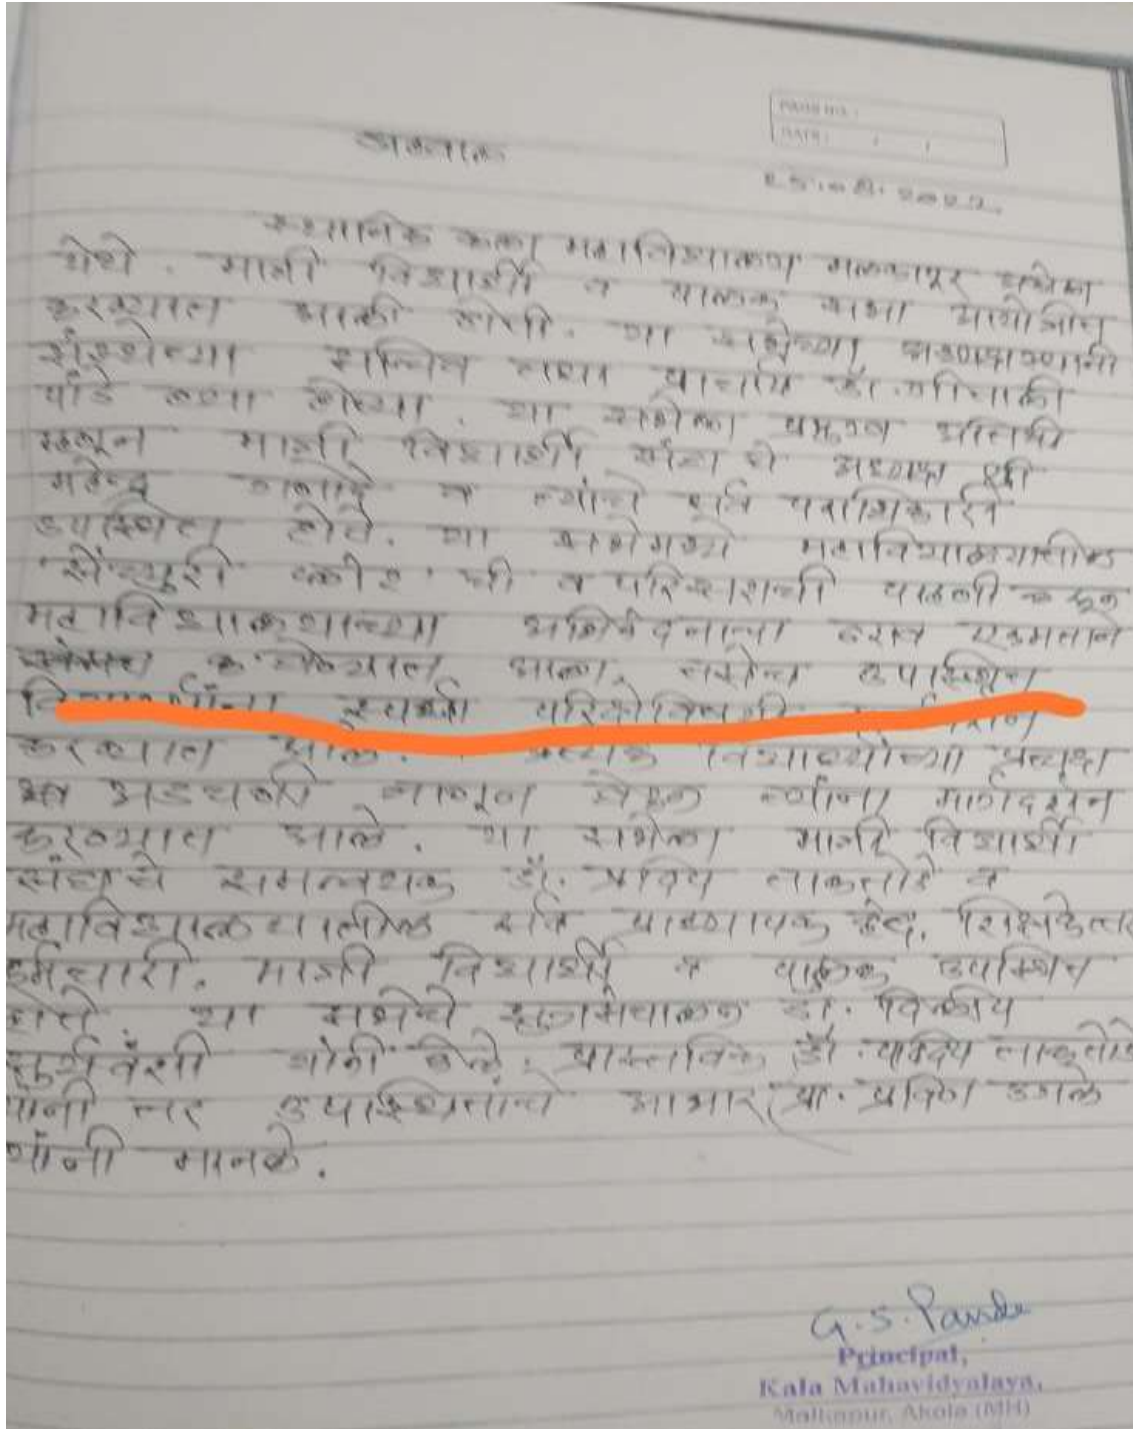 अहवाल
PAGE NO.:
DATE: / /
2022
स्थानिक कला महाविद्यालय मलकापूर अकोला
येथे . माजी विद्यार्थी व पालक सभा आयोजीत
करण्यात आली होती. या सभेच्या अध्यक्षस्थानी
संस्थेच्या सचिव तथा प्राचार्य डॉ. गीताली
पांडे ह्या होत्या . या सभेला प्रमुख अतिथी
म्हणून माजी विद्यार्थी संघाचे अध्यक्ष श्री
महेन्द्र व त्यांचे सर्व पदाधिकारी
उपस्थित होते. या सभेमध्ये महाविद्यालयातील
ची व परिसराची पाहणी करून
महाविद्यालयाच्या ठराव एकमताने
आला, तसेच उपस्थित
स्पर्धा
करण्यात आले. प्रत्येक विद्यार्थ्यांच्या प्रत्यक्ष
अडचणी जाणून घेऊन त्यांना मार्गदर्शन
करण्यात आले . या सभेला माजी विद्यार्थी
संघाचे समन्वयक डॉ. व
महाविद्यालयातील सर्व प्राध्यापक वृंद, शिक्षकेत्तर
कर्मचारी, माजी विद्यार्थी व पालक उपस्थित
होते. या सभेचे सुत्रसंचालन डॉ.
सुर्यवंशी यांनी केले. प्रास्ताविक डॉ.
यांनी तर उपस्थितांचे आभार प्रा. प्रविण
यांनी मानले.
G. S. Pande
Principal,
Kala Mahavidyalaya,
Malkapur, Akola (MH)